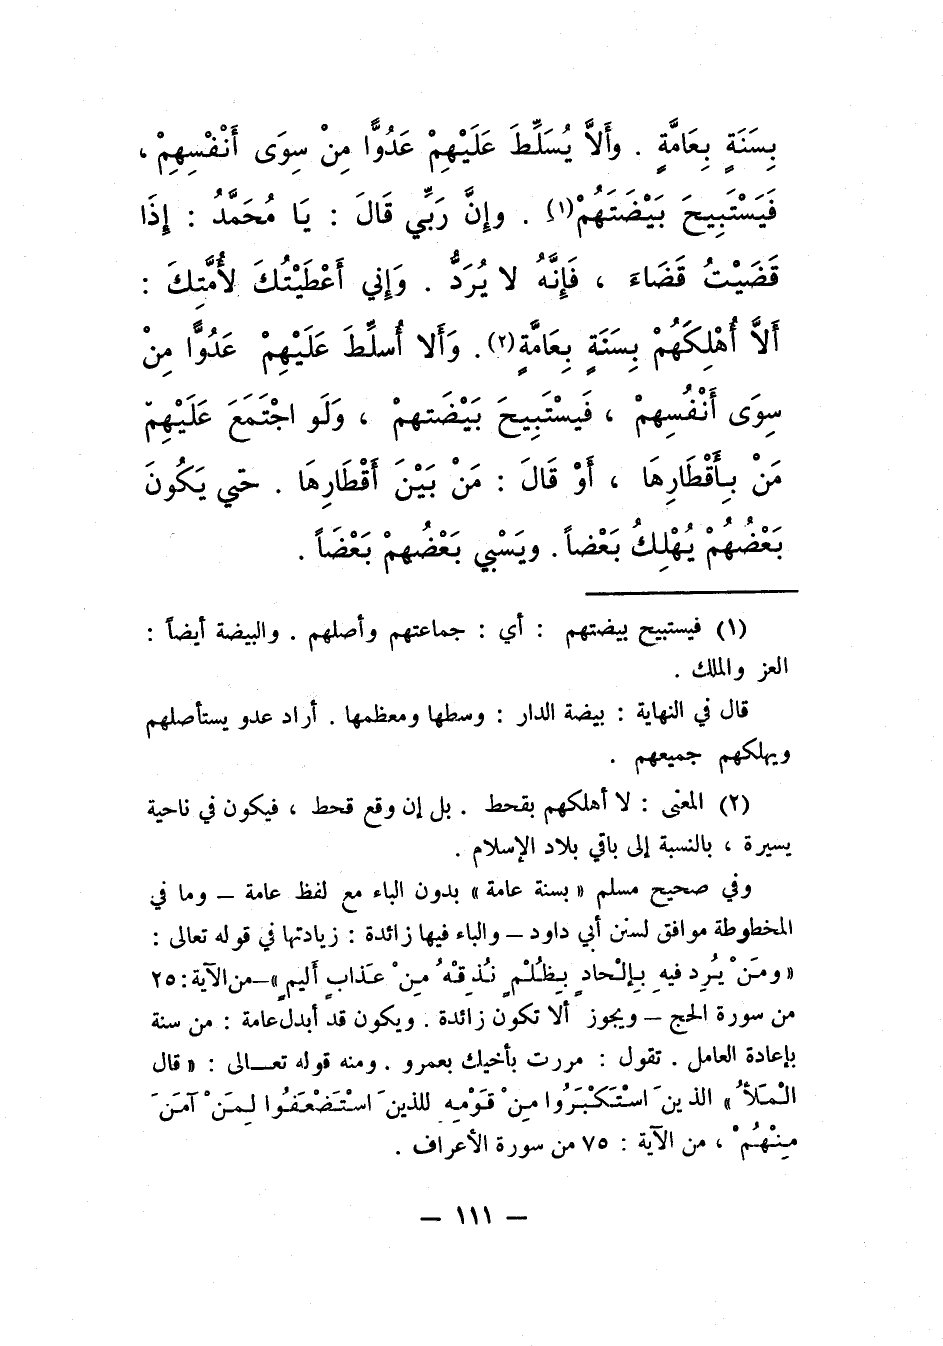 بِسَنَةٍ بِعَامَّةٍ . وأَلاَّ يُسَلِّطَ عَلَيْهِمْ عَدُوًّا مِنْ سِوَى أَنْفْسِهِمْ ،
فَيَسْتَبِيحَ بَيْضَتَهُمْ(١) . وإِنَّ رَبِّي قَالَ : يَا مُحَمَّدُ : إِذَا
قَضَيْتُ قَضَاءَ ، فَإِنَّهُ لا يُرَدُّ . وَإِني أَعْطَيْتُكَ لأُمَّتِكَ :
أَلاَّ أُهْلِكَهُمْ بِسَنَةٍ بِعَامَّةٍ(٢). وَأَلا أُسلِّطَ عَلَيْهِمْ عَدُوًّا مِنْ
سِوَى أَنْفُسِهِمْ ، فَيسْتَبِيحَ بَيْضَتهمْ ، وَلَو اجْتَمَعَ عَلَيْهِمْ
مَنْ بِأَقْطَارِهَا ، أَوْ قَالَ : مَنْ بَيْنَ أَقْطَارِهَا . حتى يَكُونَ
بَعْضُهُمْ يُهْلِكُ بَعْضاً . ويَسْبي بَعْضُهمْ بَعْضَاً .
(١) فيستبيح بيضتهم : أي : جماعتهم وأصلهم . والبيضة أيضاً :
العز والملك .
قال في النهاية : بيضة الدار : وسطها ومعظمها . أراد عدو يستأصلهم
ويهلكهم جميعهم .
(٢) المعنى : لا أهلكهم بقحط . بل إن وقع قحط ، فيكون في ناحية
يسيرة ، بالنسبة إلى باقي بلاد الإسلام .
وفي صحيح مسلم « بسنة عامة » بدون الباء مع لفظ عامة – وما في
المخطوطة موافق لسنن أبي داود – والباء فيها زائدة : زيادتها في قوله تعالى :
« ومَنْ يُرِد فيهِ بِإلْحادٍ بِظُلْمٍ نُذِقْهُ مِنْ عَذابٍ أليمٍ » – من الآية : ٢٥
من سورة الحج – ويجوز ألا تكون زائدة . ويكون قد أبدل عامة : من سنة
بإعادة العامل . تقول : مررت بأخيك بعمرو . ومنه قوله تعـالى : « قال
الْمَلأُ » الذينَ اسْتَكْبَرُوا مِنْ قَوْمِهِ للذينَ اسْتَضْعَفُوا لِمَنْ آمَنَ
مِنْهُمْ ، من الآية : ٧٥ من سورة الأعراف .
– ١١١ –